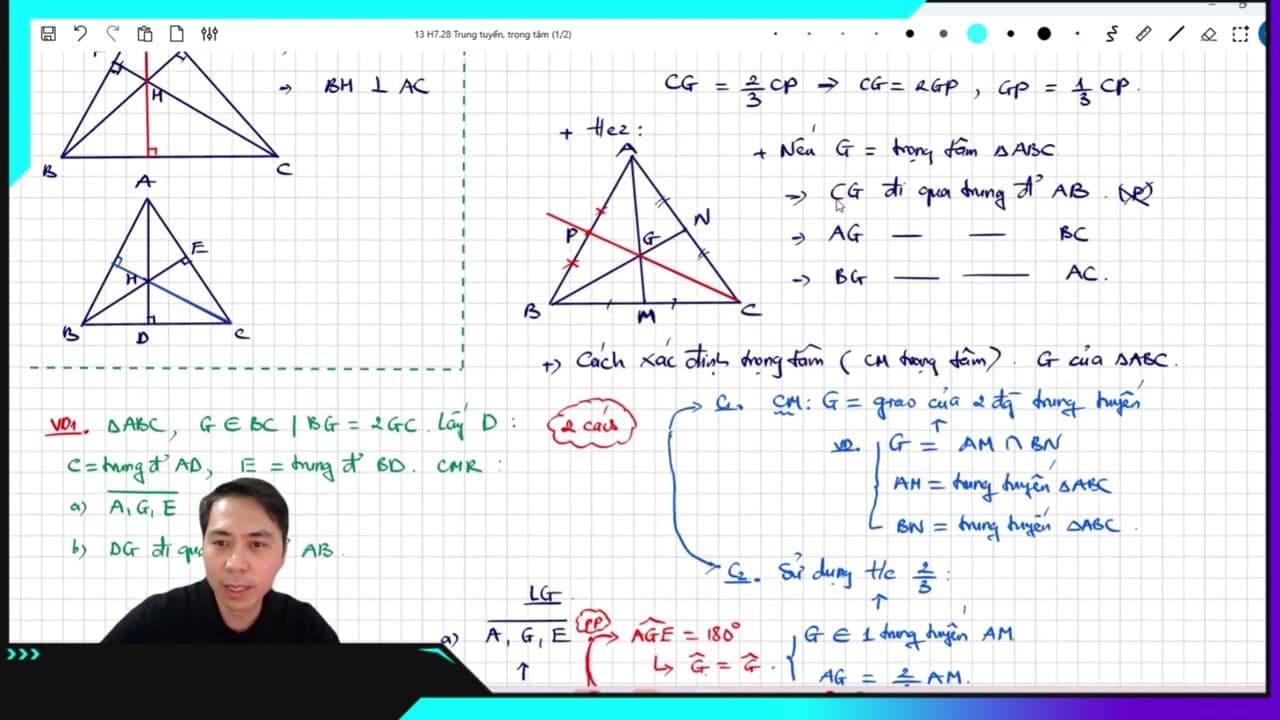 13 H7.28 Trung tuyến, trọng tâm (1/2)
H
B
C
→ BH ⊥ AC
A
E
H
B
D
C
CG = 2/3 CP → CG = 2GP , GP = 1/3 CP.
+ Hez :
A
P
G
N
B
M
C
+ Nếu G = trọng tâm ΔABC
→ CG đi qua trung đ' AB .
→ AG — — BC
→ BG — — AC.
+) Cách xác định trọng tâm ( CM trọng tâm) . G của ΔABC .
VD1. ΔABC, G ∈ BC | BG = 2GC . Lấy D :
C = trung đ' AD, E = trung đ' BD. CMR :
a) A, G, E
b) DG đi qua AB .
2 cách
C1. CM : G = giao của 2 đg trung tuyến
VD. G = AM ∩ BN
AM = trung tuyến ΔABC
BN = trung tuyến ΔABC .
C2. Sử dụng t/c 2/3 :
↑
G ∈ 1 trung tuyến AM
AG = 2 AM.
LG
a) A, G, E
↑
PP
→ AGE = 180°
↳ G = G .